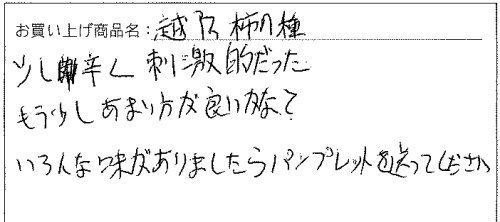 お買い上げ商品名：越乃柿の種
少し辛く刺激的だった
もう少しあまい方が良いかな？
いろんな味がありましたらパンフレットを送ってください